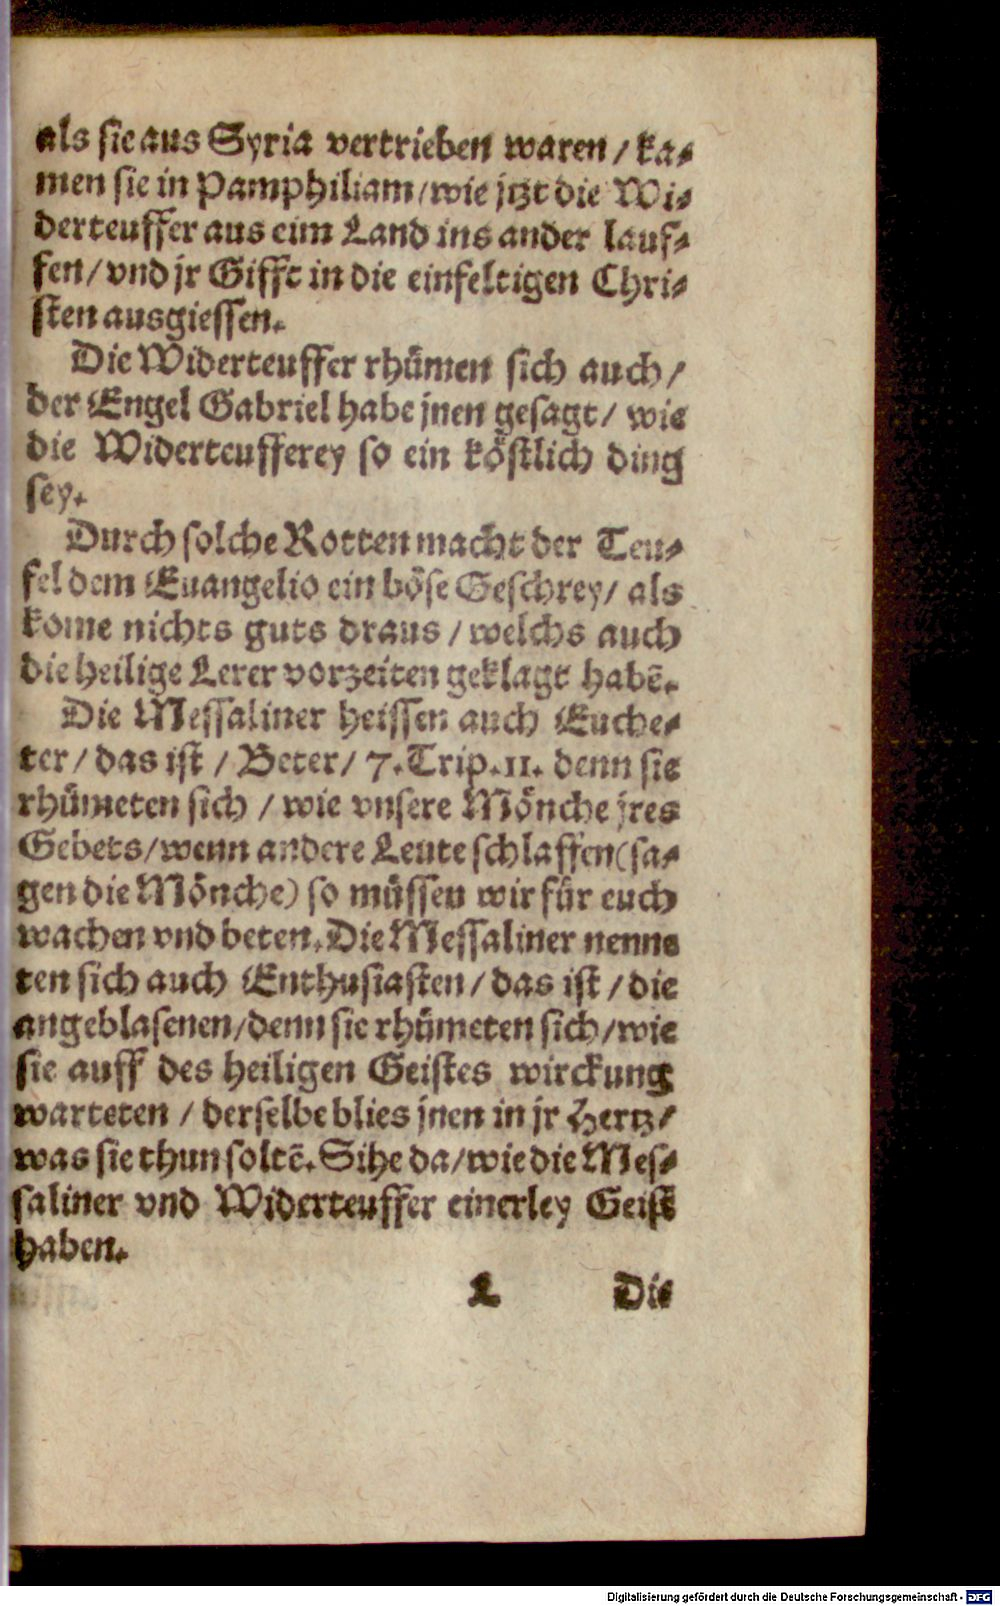 als sie aus Syria vertrieben waren / ka-
men sie in Pamphiliam / wie jtzt die Wi-
derteuffer aus eim Land ins ander lauf-
fen / vnd jr Gifft in die einfeltigen Chri-
sten ausgiessen.
Die Widerteuffer rhümen sich auch /
der Engel Gabriel habe jnen gesagt / wie
die Widerteufferey so ein köstlich ding
sey.
Durch solche Rotten macht der Teu-
fel dem Euangelio ein böse Geschrey / als
kome nichts guts draus / welchs auch
die heilige Lerer vorzeiten geklagt habē.
Die Messaliner heissen auch Euche-
ter / das ist / Beter / 7. Trip. 11. denn sie
rhümeten sich / wie vnsere Mönche jres
Gebets / wenn andere Leute schlaffen (sa-
gen die Mönche) so müssen wir für euch
wachen vnd beten. Die Messaliner nenne
ten sich auch Enthusiasten / das ist / die
angeblasenen / denn sie rhümeten sich / wie
sie auff des heiligen Geistes wirckung
warteten / derselbe blies jnen in jr Hertz /
was sie thun soltē. Sihe da / wie die Mes-
saliner vnd Widerteuffer einerley Geist
haben.
L Die
Digitalisierung gefördert durch die Deutsche Forschungsgemeinschaft - DFG